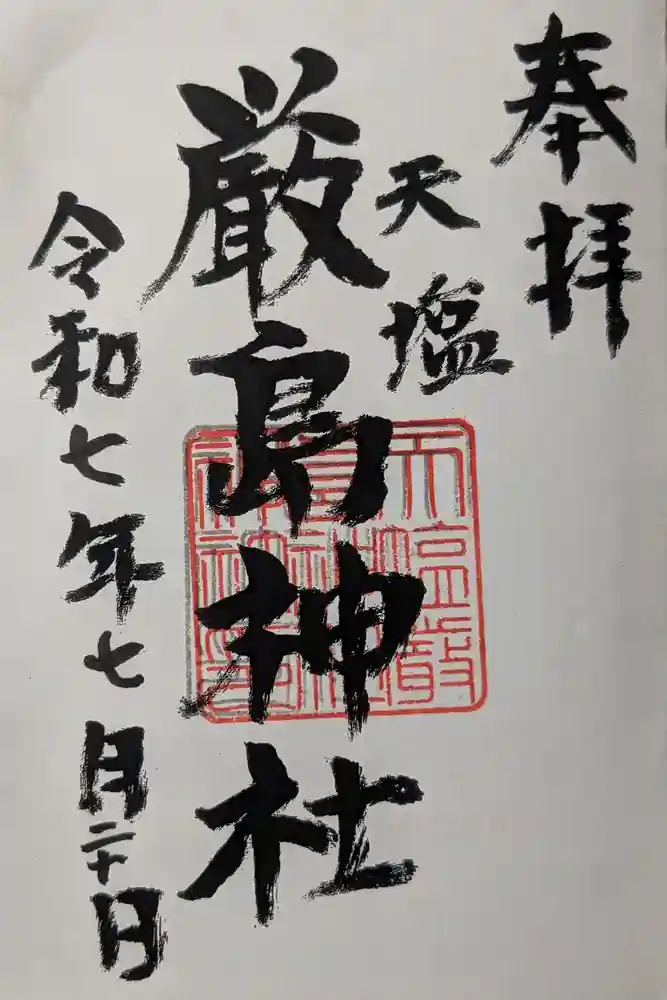 奉拝
天塩
厳島神社
令和七年七月二十日